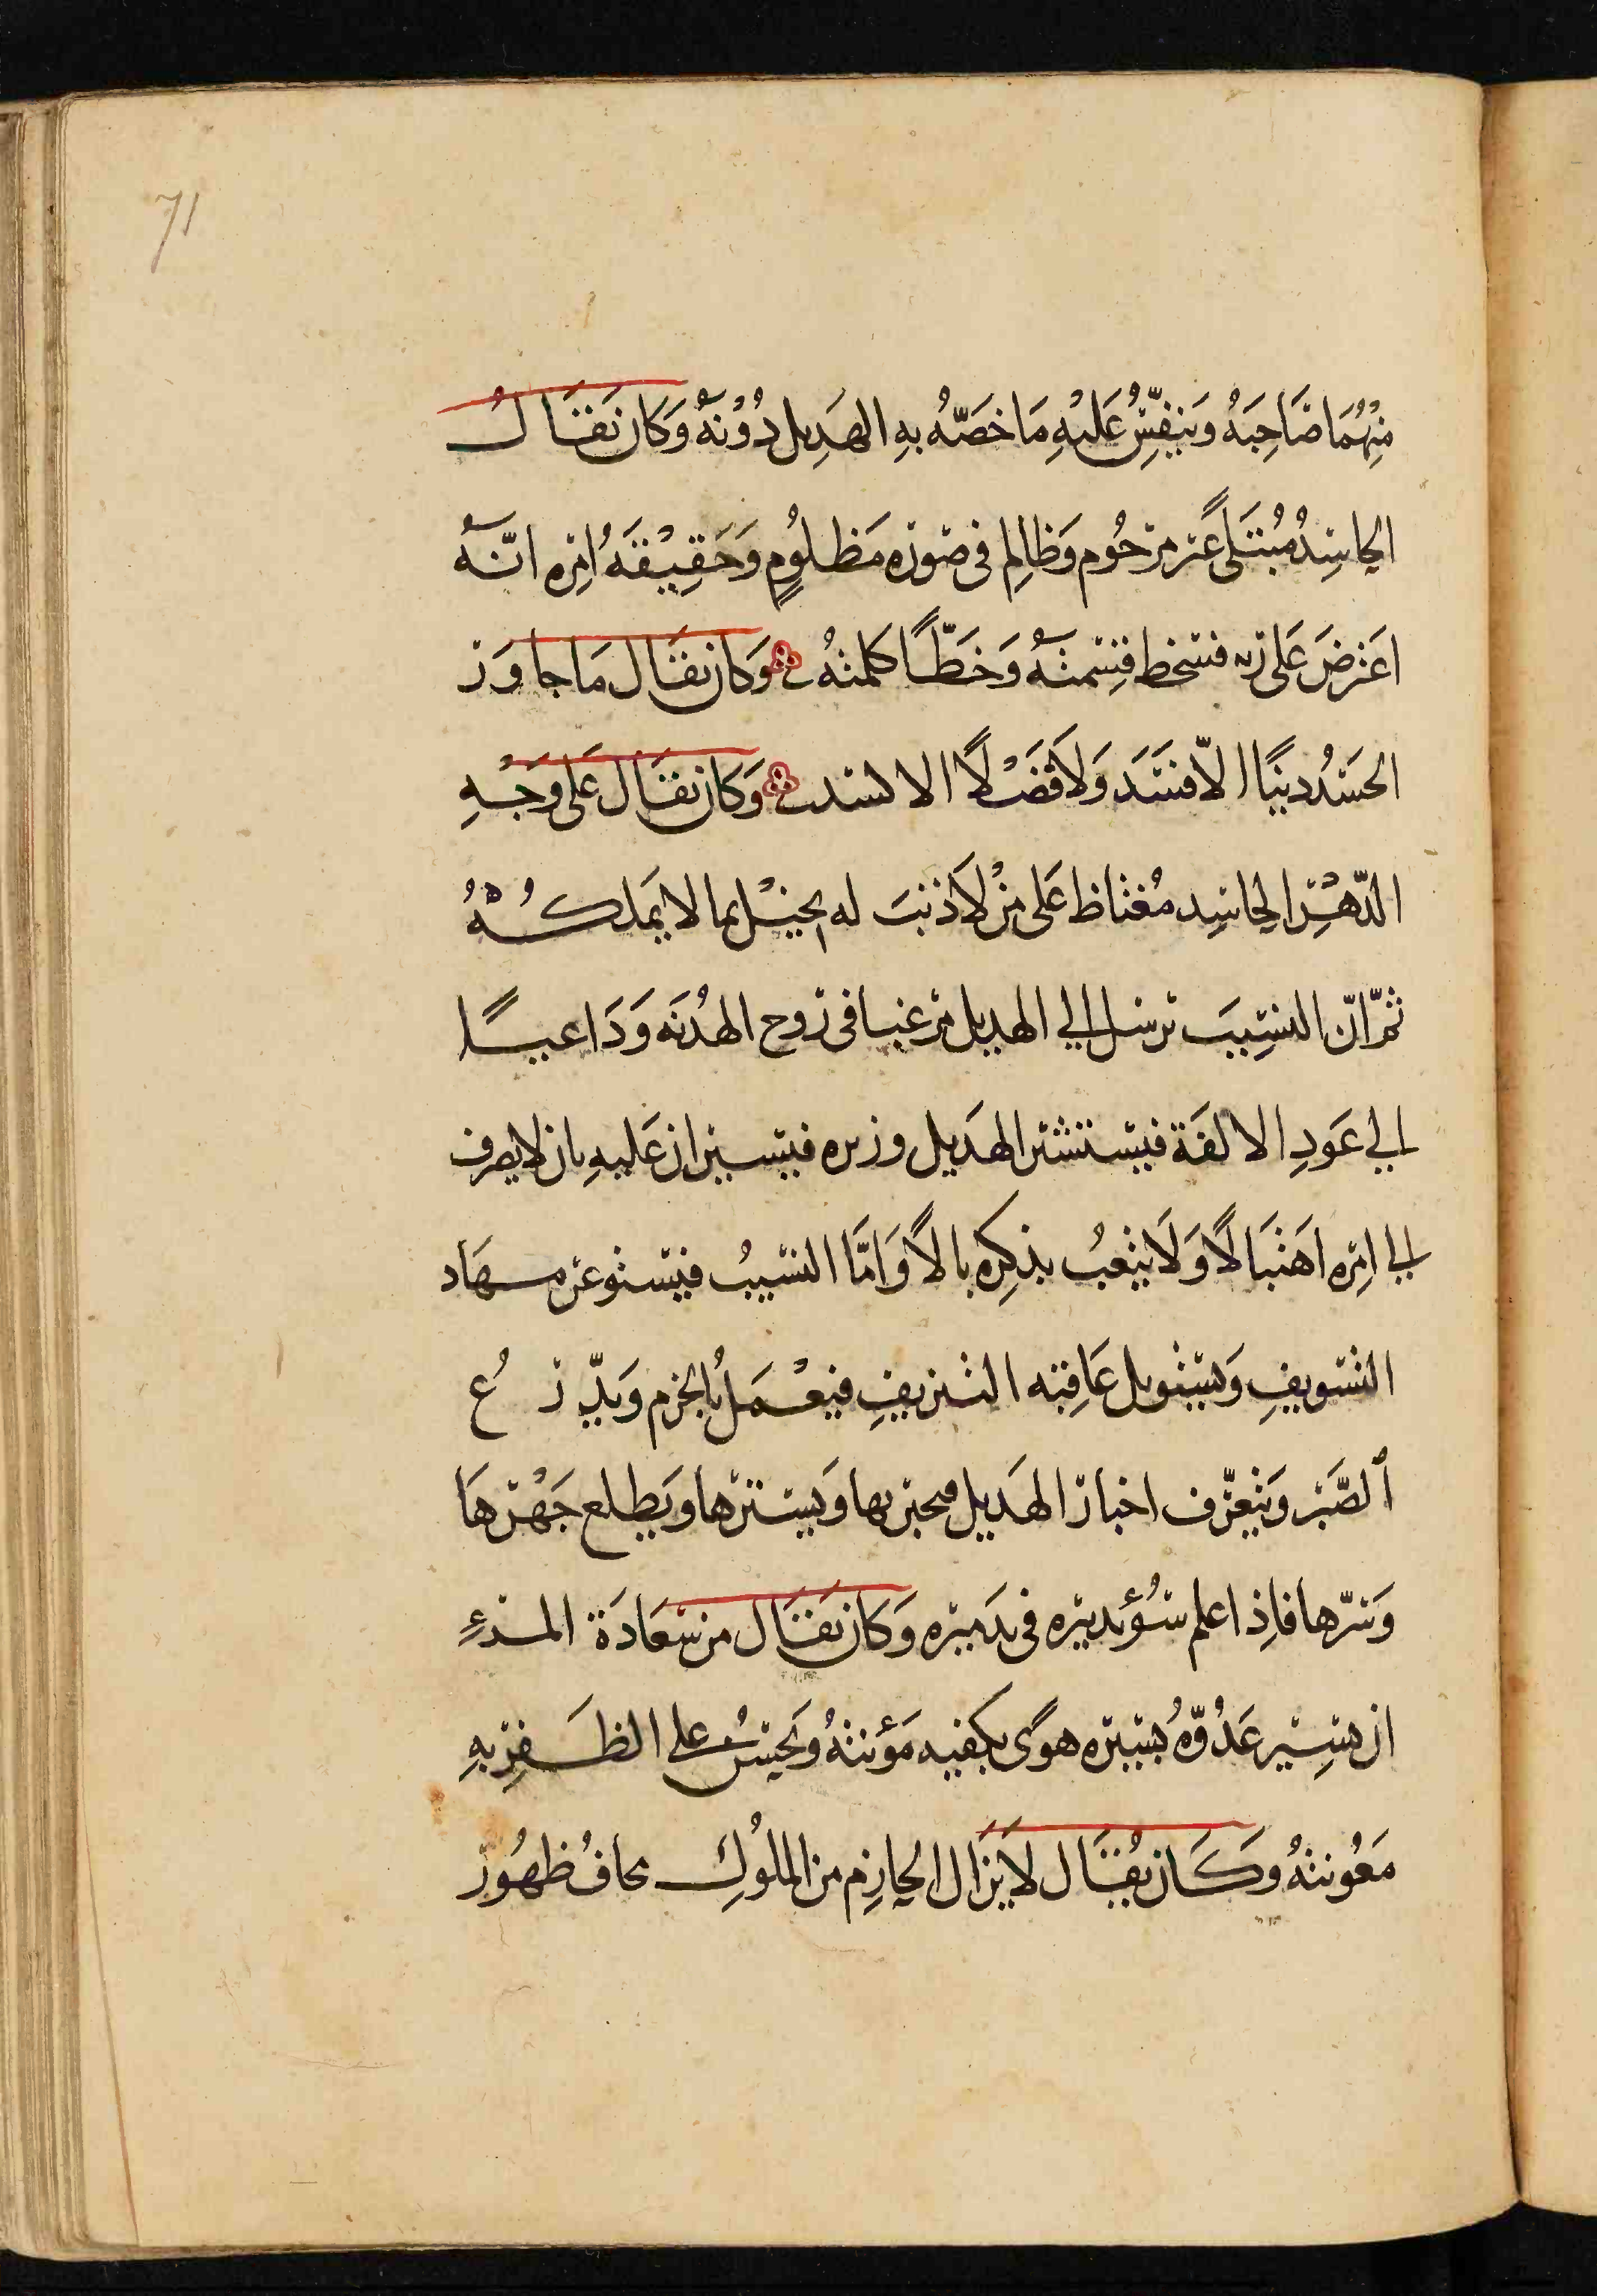 71
مِنْهُمَا صَاحِبَهُ وَيَنْفِسُ عَلَيْهِ مَا خَصَّهُ بِهِ الهَدِيل دُوْنَهُ وَكَانَ يُقَالُ
الحاسِدُ مُبْتَلًى غير مرحُوم وَظالِم فى صوره مَظلُومٍ وَحَقِيْقَهُ امْره انّه
اعترضَ عَلى ربه فسخط قِسْمتهُ وَخَطَّأ كلمتهُ وَكان يقَال مَا جاوَز
الحَسَدُ دينًا الّا فسَد وَلَا فَضْلًا الا
وَكان يقَال عَلى وَجْهِ
الدّهْرِ الحاسِد مُغتاظ عَلى مَنْ لَا ذنبَ له بخيْل بما لا يَملكُهُ
ثمّ انّ النسِيبَ ترسل الي الهديل مرغبا فى رَوح الهُدنَه وَدَاعيًا
الي عَودِ الالفَة فيستشير الهَديل وزيره فيشيران عَليهِ بان لا يصرف
الي امره اهتبَالًا وَلَا يتعبُ بذكِره بالًا وَامَّا النسيبُ
عن مهَاد
التسويفِ
عَاقِبَه
فيعْمَلُ بالحزم وَيدّرعُ
الصَّبْر وَيتعرّف اخبار الهَديل
وَيطلع جَهْرهَا
وَسرّها فاِذا علم سُوء تدبيره فى تدميره وَكان يقَال من سعَادَة المرءِ
ان يسِير عَدُوّهُ بسيره هوًى يكفيه مَؤنتهُ
على الظَفِر بهِ
مَعُونتهُ وكَان يُقَال لَا يزَال الحازِم من الملُوكِ يخافُ ظهُور